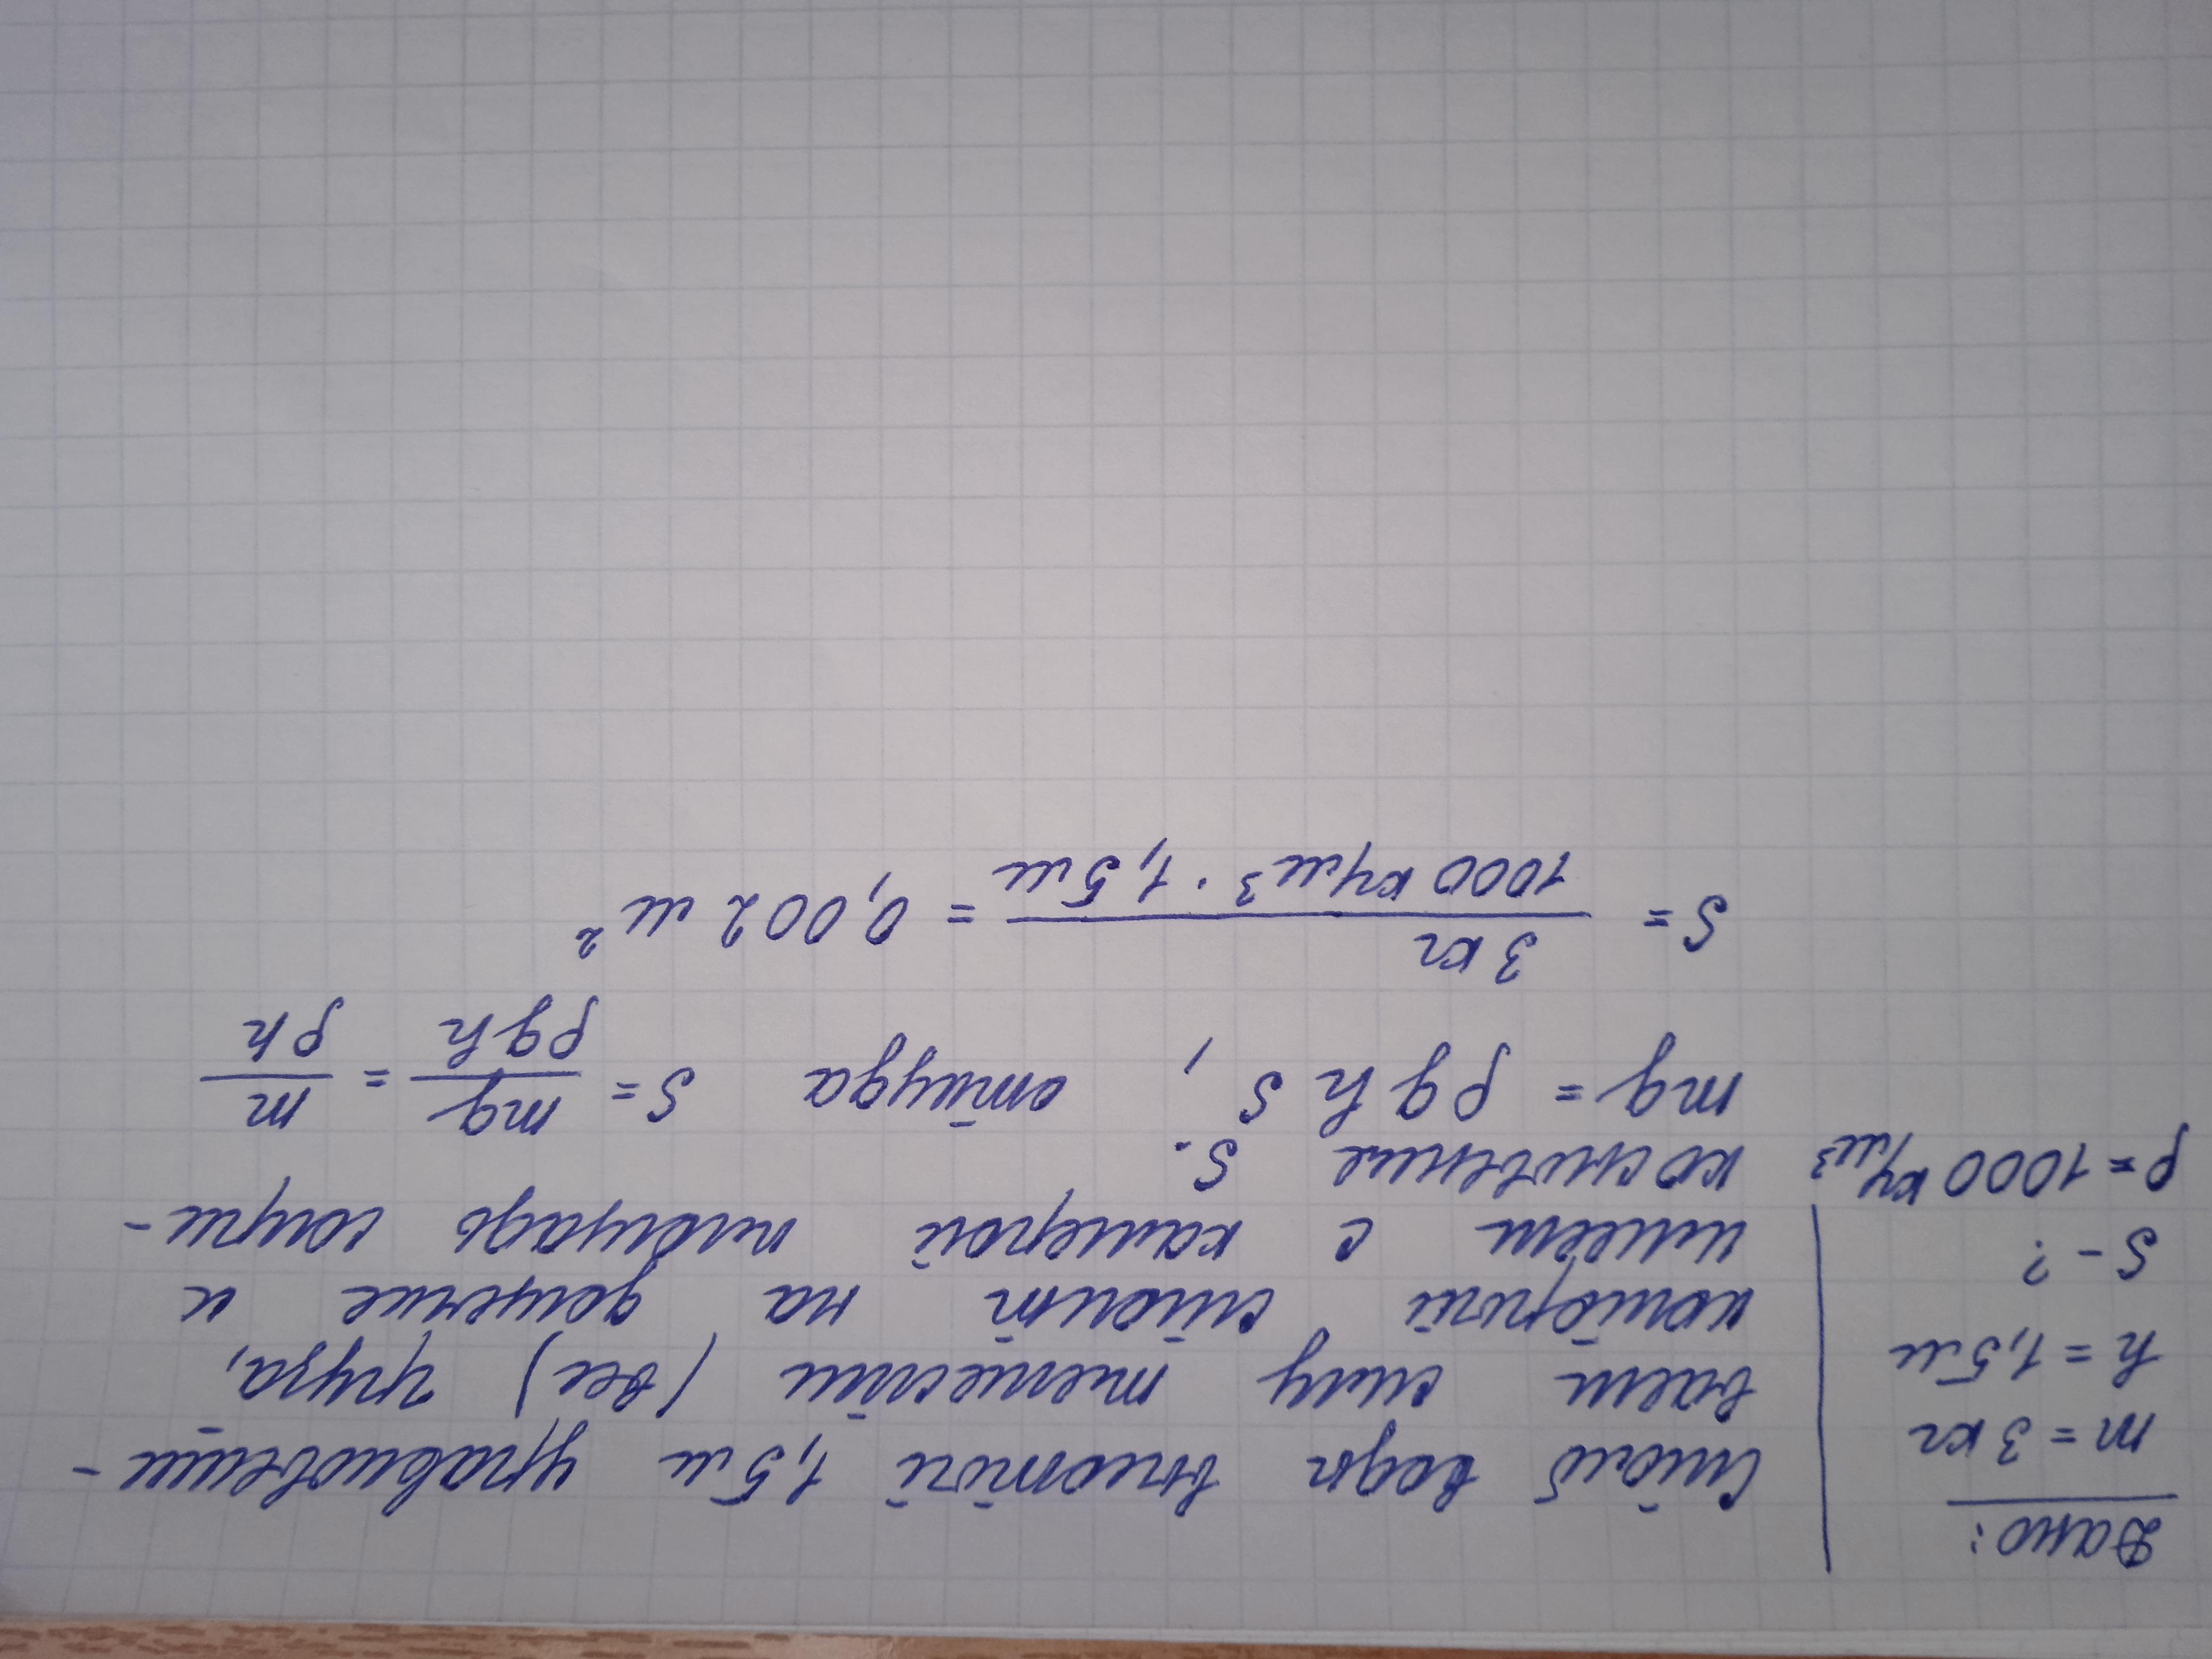 Дано:
m = 3 кг
h = 1,5 м
S - ?
ρ = 1000 кг/м³
Столб воды высотой 1,5 м уравновеши-
вает силу тяжести (вес) груза,
который стоит на дощечке и
имеет с камерой площадь сопри-
косновения S.
mg = ρghS, откуда S = mg/ρgh = m/ρh
S = 3 кг/1000 кг/м³ · 1,5 м = 0,002 м²